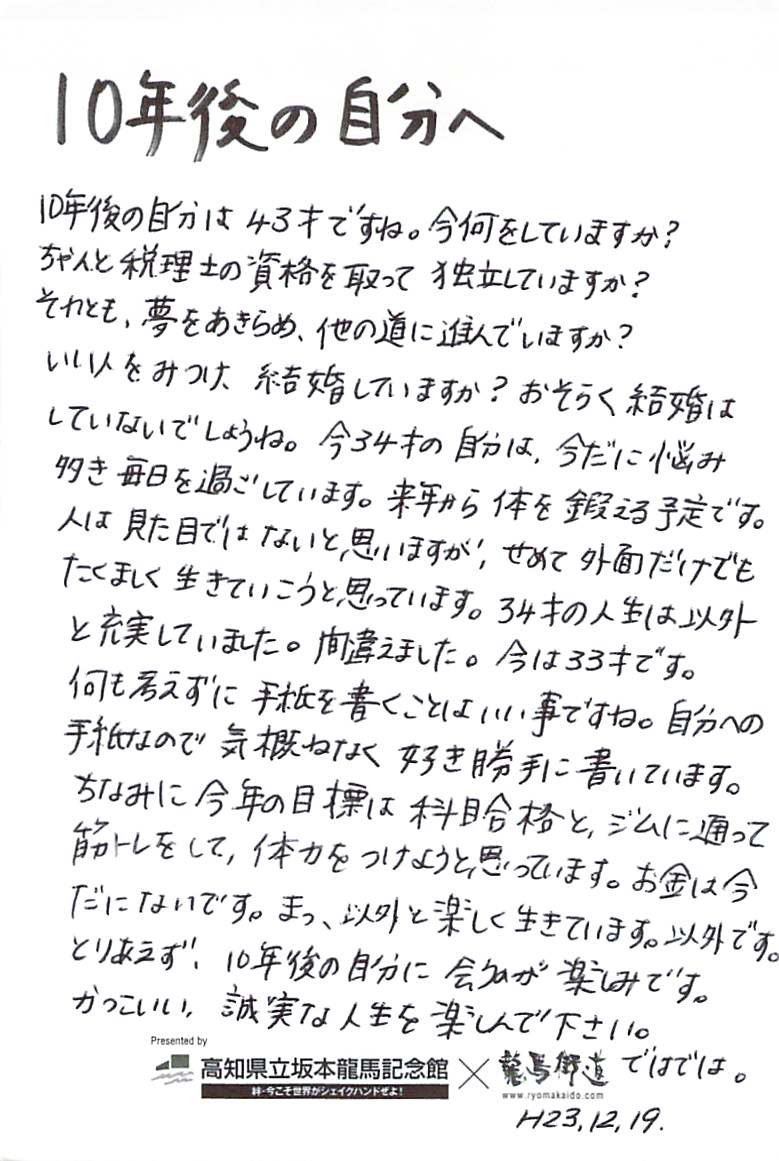 10年後の自分へ
10年後の自分は43才ですね。今何をしていますか?
ちゃんと税理士の資格を取って独立していますか?
それとも、夢をあきらめ、他の道に進んでいますか?
いい人をみつけ、結婚していますか?おそらく結婚は
していないでしょうね。今34才の自分は、今だに悩み
多き毎日を過ごしています。来年から体を鍛える予定です。
人は見た目ではないと思いますが、せめて外面だけでも
たくましく生きていこうと思っています。34才の人生は以外
と充実していました。間違えました。今は33才です。
何も考えずに手紙を書くことはいい事ですね。自分への
手紙なので気概ねなく好き勝手に書いています。
ちなみに今年の目標は科目合格と、ジムに通って
筋トレをして、体力をつけようと思っています。お金は今
だにないです。まっ、以外と楽しく生きています。以外です。
とりあえず、10年後の自分に会うのが楽しみです。
かっこいい、誠実な人生を楽しんで下さい。
Presented by
高知県立坂本龍馬記念館 × 龍馬街道 ではでは。
絆・今こそ世界がシェイクハンドぜよ!
www.ryomakaido.com
H23,12,19.